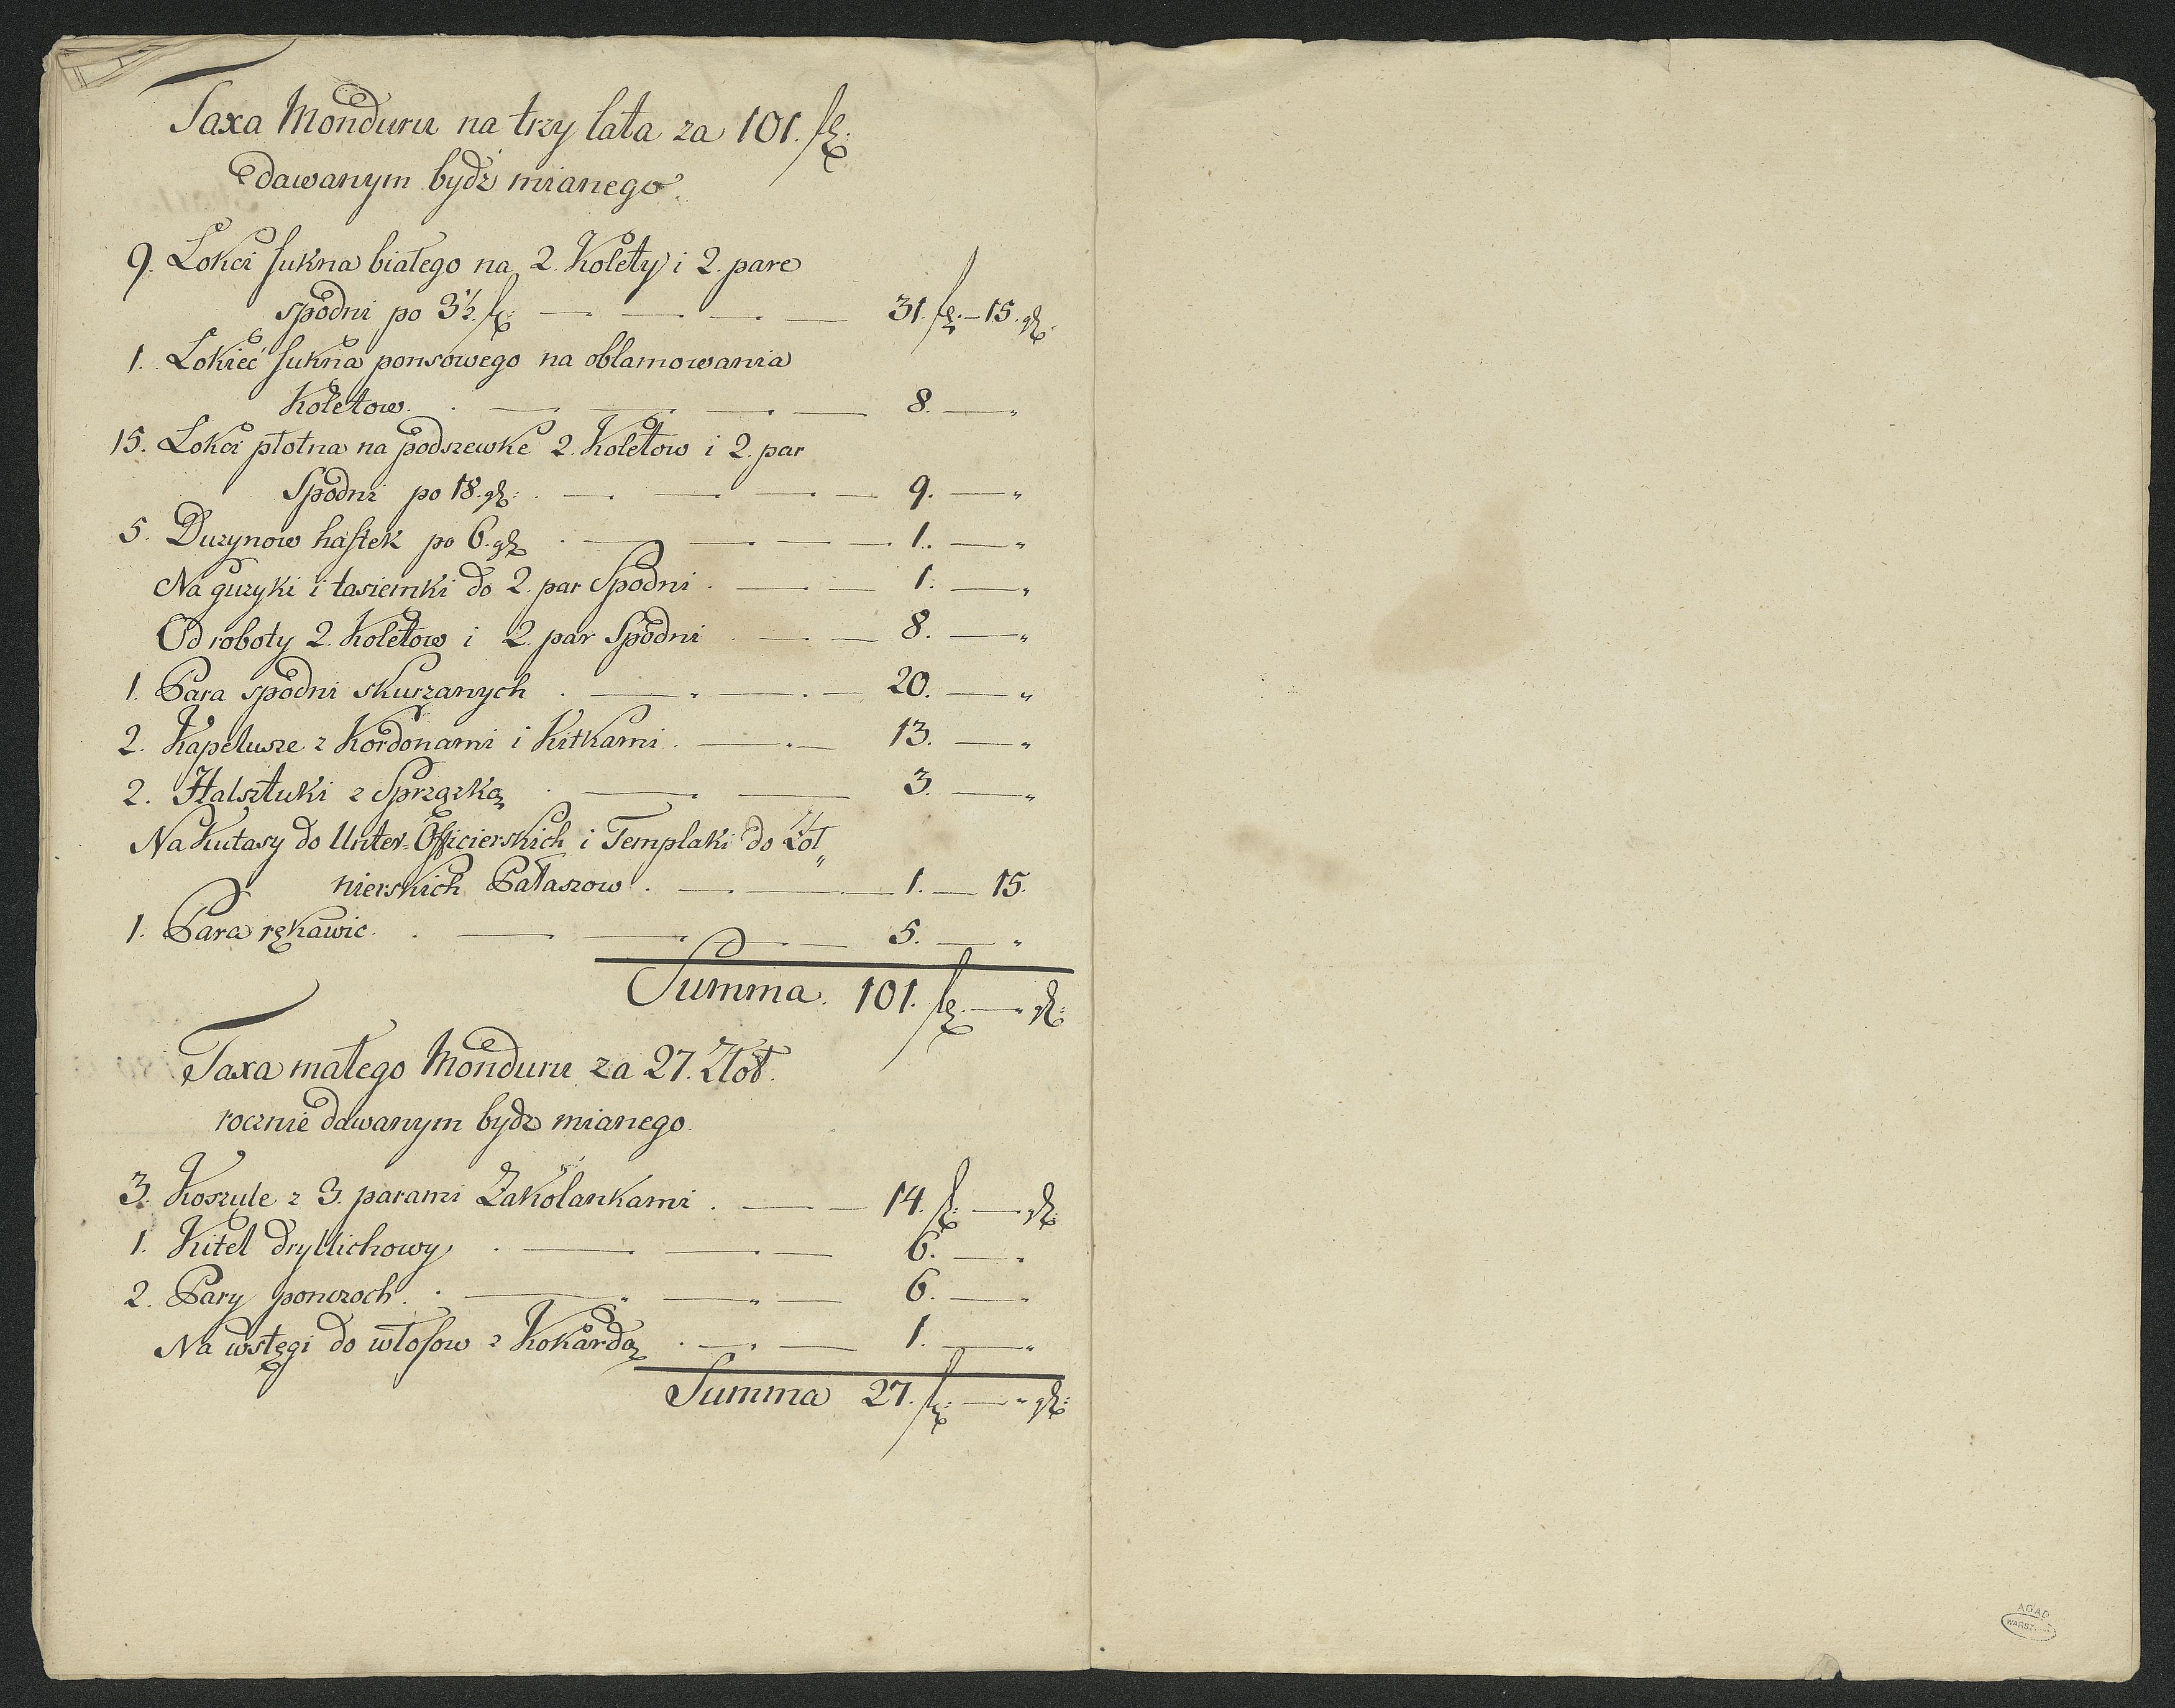 Taxa Monduru na trzy lata za 101. fl:
dawanym bydź mianego.
9. Lokci sukna białego na 2. Kolety i 2. pare
spodni po 3½. fl: 31. fl: — 15. gl:
1. Lokieć sukna ponsowego na oblamowania
Koletow. 8. — "
15. Lokci płotna na podszewke 2. Koletow i 2. par
Spodni po 18. gl: 9. — "
5. Duzynow haftek po 6. gl 1. — "
Na guzyki i tasiemki do 2. par Spodni 1. — "
Od roboty 2. Koletow i 2. par Spodni 8. — "
1. Para spodni skurzanych 20. — "
2. Kapelusze z Kordonami i Kitkami 13. — "
2. Halsztuki z Sprzązką 3. — "
Na Kutasy do Unter-Officierskich i Templaki do Zoł„
nierskich Pałaszow. 1. — 15.
1. Para rękawic. 5. — "
Summa. 101. fl: — " gl:
Taxa małego Monduru za 27. Złot.
rocznie dawanym bydz mianego.
3. Koszule z 3. parami Zakolankami. 14. fl: — gl:
1. Kitel dryllichowy 6. — "
2. Pary ponczoch. 6. — "
Na wstęgi do włosow z Kokardą 1. — "
Summa 27. fl: — " gl:
AGAD